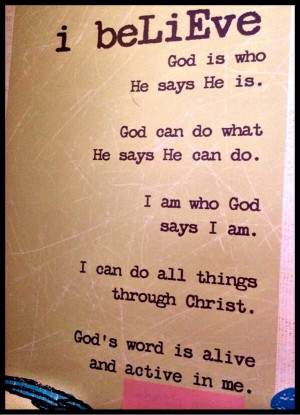 i beLiEve
God is who
He says He is.
God can do what
He says He can do.
I am who God
says I am.
I can do all things
through Christ.
God's word is alive
and active in me.